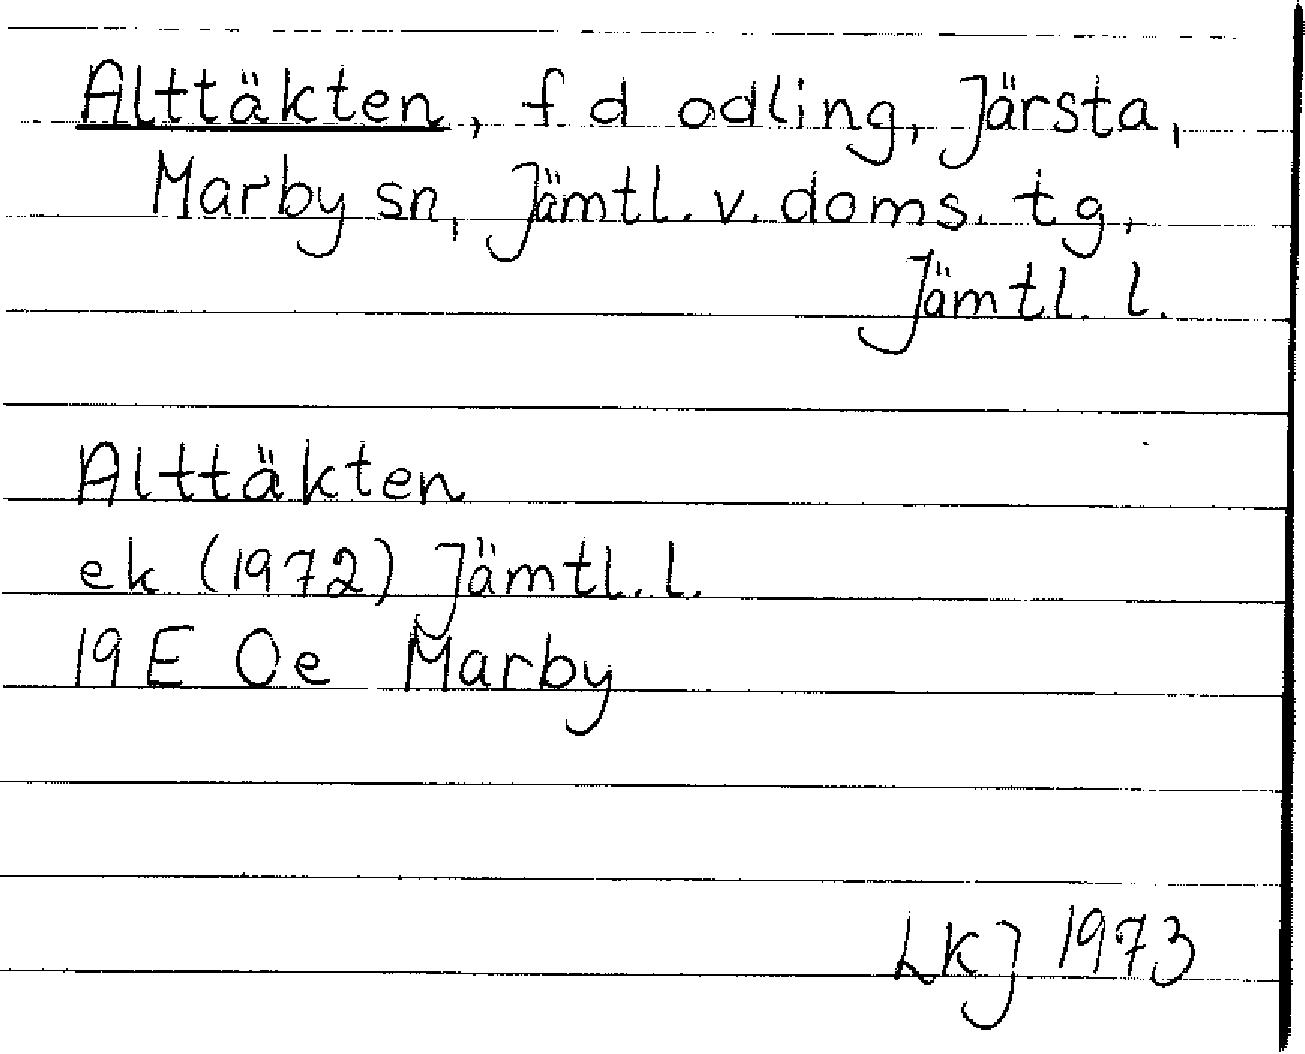 Alttäkten, f d odling, Järsta,
Marby sn, Jämtl. v. doms. tg,
Jämtl. l.
Alttäkten
ek (1972) Jämtl. l.
19E Oe Marby
LKJ 1973